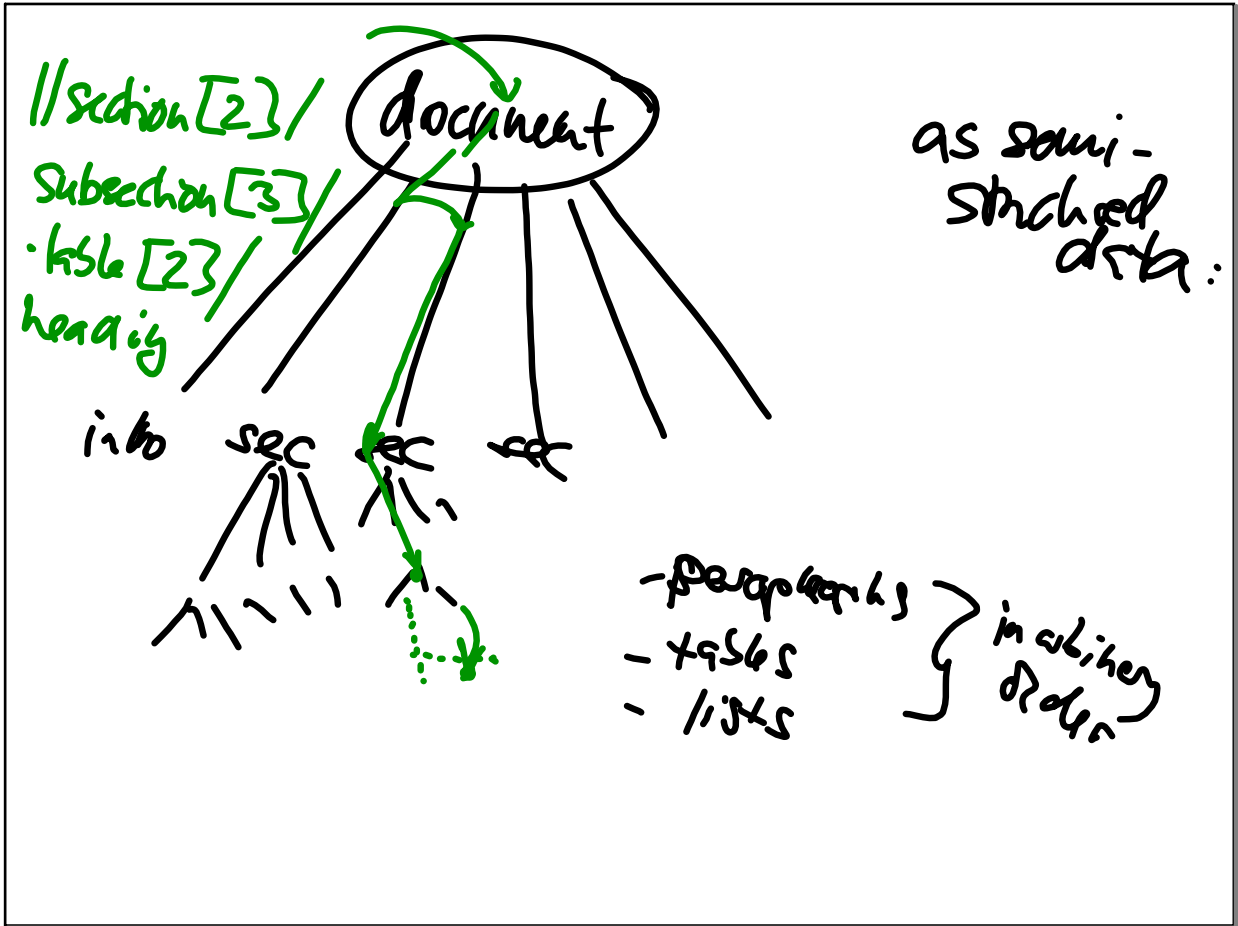 //section[2]/
subsection[3]/
table[2]/
heading
document
as semi-
structured
data:
intro
sec
sec
sec
- paragraphs
- tables
- lists
in arbitrary
order